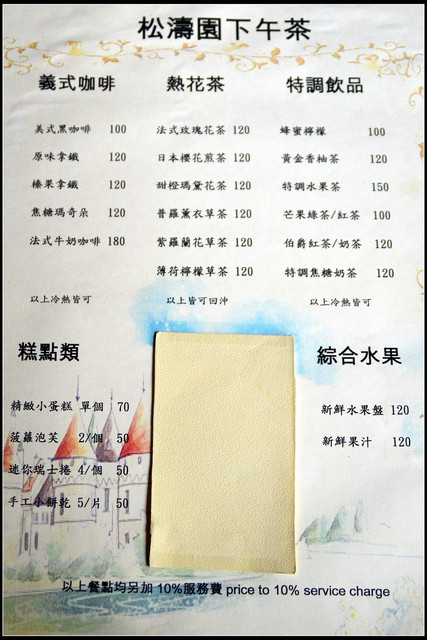 松濤園下午茶
義式咖啡
美式黑咖啡 100
原味拿鐵 120
榛果拿鐵 120
焦糖瑪奇朵 120
法式牛奶咖啡 180
以上冷熱皆可
熱花茶
法式玫瑰花茶 120
日本櫻花煎茶 120
甜橙瑪黛花茶 120
普羅薰衣草茶 120
紫羅蘭花草茶 120
薄荷檸檬草茶 120
以上皆可回沖
特調飲品
蜂蜜檸檬 100
黃金香柚茶 120
特調水果茶 150
芒果綠茶/紅茶 100
伯爵紅茶/奶茶 120
特調焦糖奶茶 120
以上冷熱皆可
糕點類
精緻小蛋糕 單個 70
菠蘿泡芙 2/個 50
迷你瑞士捲 4/個 50
手工小餅乾 5/片 50
綜合水果
新鮮水果盤 120
新鮮果汁 120
以上餐點均另加 10%服務費 price to 10% service charge